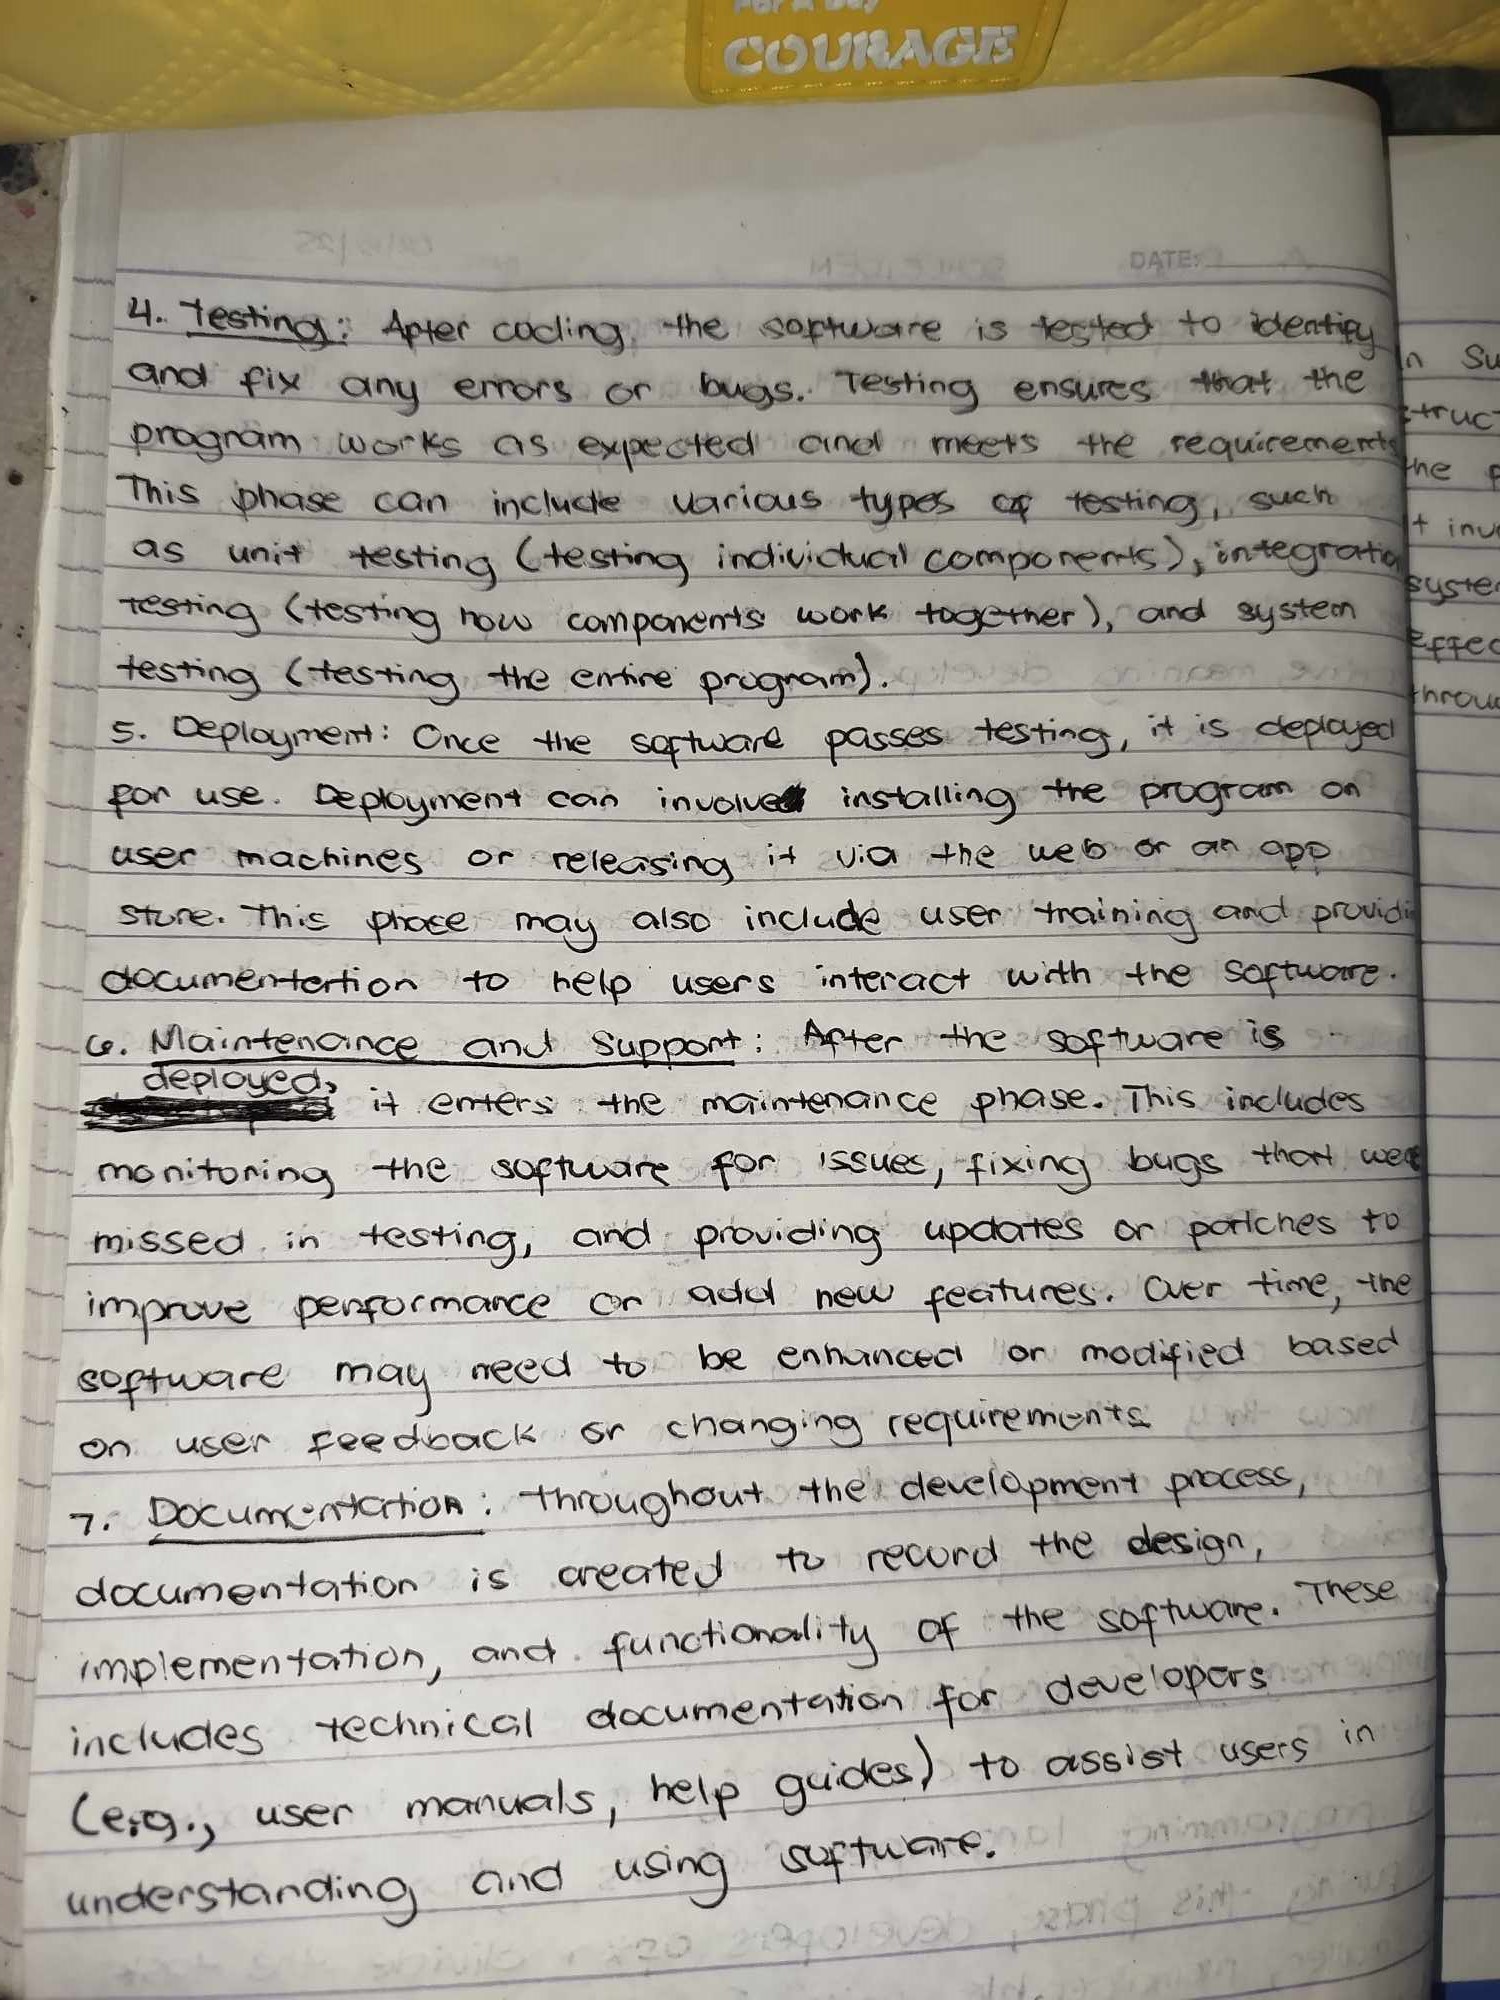 For A Day
COURAGE
DATE:
4. Testing: After coding, the software is tested to identify
and fix any errors or bugs. Testing ensures that the
program works as expected and meets the requirements
This phase can include various types of testing, such
as unit testing (testing individual components), integratio
testing (testing how components work together), and system
testing (testing the entire program).
5. Deployment: Once the software passes testing, it is deployed
for use. Deployment can involve installing the program on
user machines or releasing it via the web or an app
store. This phase may also include user training and providi
documentation to help users interact with the software.
6. Maintenance and Support: After the software is
deployed, it enters the maintenance phase. This includes
monitoring the software for issues, fixing bugs that were
missed in testing, and providing updates or patches to
improve performance or add new features. Over time, the
software may need to be enhanced or modified based
on user feedback or changing requirements
7. Documentation: throughout the development process,
documentation is created to record the design,
implementation, and functionality of the software. These
includes technical documentation for developers
(e.g., user manuals, help guides) to assist users in
understanding and using software.
n Su
truct
the p
t inv
syste
Effec
throu